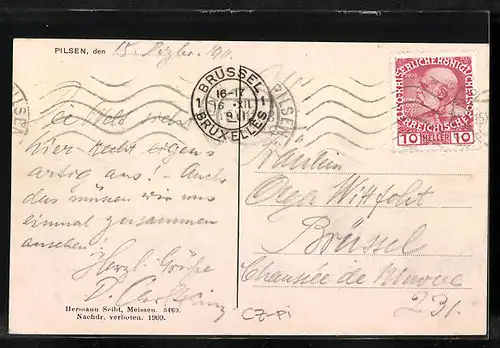 PILSEN, den 15. Dezbr. 1911
BRÜSSEL
16-17
1 16 XII 1
BRUXELLES
PILSEN
KAISERLICHE KÖNIGLICHE
ÖSTERREICHISCHE POST
10 HELLER 10
Die Welt sieht
hier recht eigen
artig aus! Auch
das müssen wir uns
einmal zusammen
ansehen!
Herzl. Grüsse
D.
Fräulein
Olga Wittfoht
Brüssel
Chaussée de
231.
Hermann Seibt, Meissen.
Nachdr. verboten. 1909.
CZ-Pi